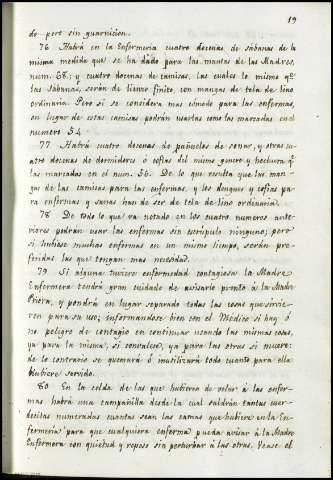 19
do pero sin guarnicion.
76 Habrá en la Enfermeria cuatro docenas de sábanas de la
misma medida que se ha dado para las mantas de las Madres,
num. 68; y cuatro docenas de camisas, las cuales lo mismo qe.
las sábanas, serán de lienzo finito, con mangas de tela de lino
ordinaria. Pero si se considera mas cómodo para las enfermas,
en lugar de estas camisas podrán usarlas como las marcadas en el
numero 54.
77 Habrá cuatro docenas de pañuelos de sonar, y otras cu-
atro docenas de dormidores ó cofias del mismo genero y hechura qe.
las marcadas en el num. 56. De lo que resulta que las man-
gas de las camisas para las enfermas, y los dengues y cofias pa-
ra enfermas y sanas han de ser de tela de lino ordinaria.
78 De todo lo que va notado en los cuatro numeros ante-
riores podrán usar las enfermas sin escrúpulo ninguno; pero
si hubiese muchas enfermas en un mismo tiempo, serán pre-
feridas las que tengan mas necesidad.
79 Si alguna tuviere enfermedad contagiosa la Madre
Enfermera tendrá gran cuidado de avisarlo pronto á la Madre
Priora, y pondrá en lugar separado todas las cosas que sirvie-
ren para su uso, informandose bien con el Médico si hay ó
no peligro de contagio en continuar usando las mismas cosas,
ya para la misma, si convalece, ya para las otras si muere:
de lo contrario se quemará ó inutilizará todo cuanto para ella
hubiere servido.
80 En la celda de las que hubieren de velar á las enfer-
mas habrá una campanilla desde la cual saldrán tantas cuer-
decitas numeradas cuantas sean las camas que hubiere en la En-
fermeria para que cualquiera enferma pueda avisar á la Madre
Enfermera con quietud y reposo sin perturbar á las otras. Vease el